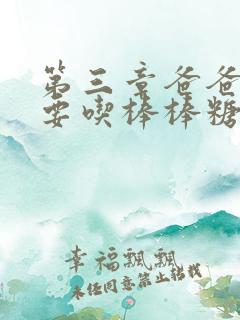 第三章爸爸
要吃棒棒糖
幸福飘飘
未经同意禁止转载